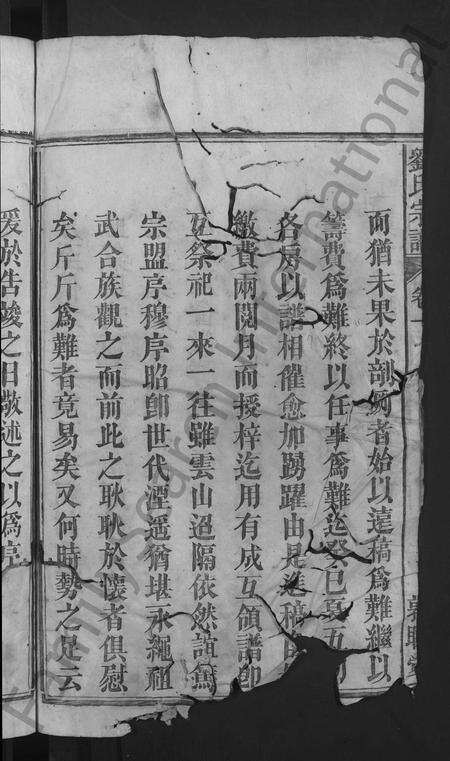 劉氏宗譜 卷
而猶未果於剞劂者始以達稿為難繼以
籌費為難終以任事為難迄癸巳夏五
各房以譜相催愈加踴躍由是達稿
繳費兩閱月而授梓迄用有成互領譜卽
互祭祀一來一往雖雲山迢隔依然誼篤
宗盟序穆序昭卽世代湮遥猶堪永繩祖
武合族觀之而前此之耿耿於懷者俱慰
矣斤斤為難者竟易矣又何時勢之足云
爰於告竣之日敬述之以為序
FamilySearch International